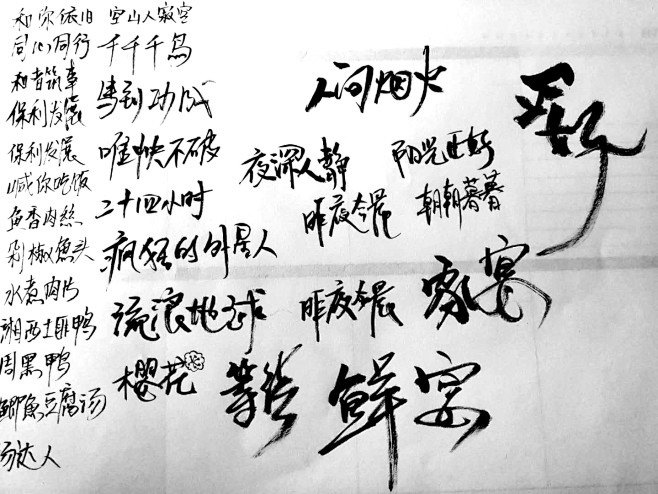 和你依旧
同心同行
和者筑事
保利发展
保利发展
喊你吃饭
鱼香肉丝
剁椒鱼头
水煮肉片
湘西土匪鸭
周黑鸭
鲫鱼豆腐汤
汤达人
空山人寂空
千千千鸟
马到功成
唯快不破
二十四小时
疯狂的外星人
流浪地球
樱花
人间烟火
夜深人静
阳光正好
昨夜今晨
朝朝暮暮
昨夜今晨
家宴
等你
鲜宴